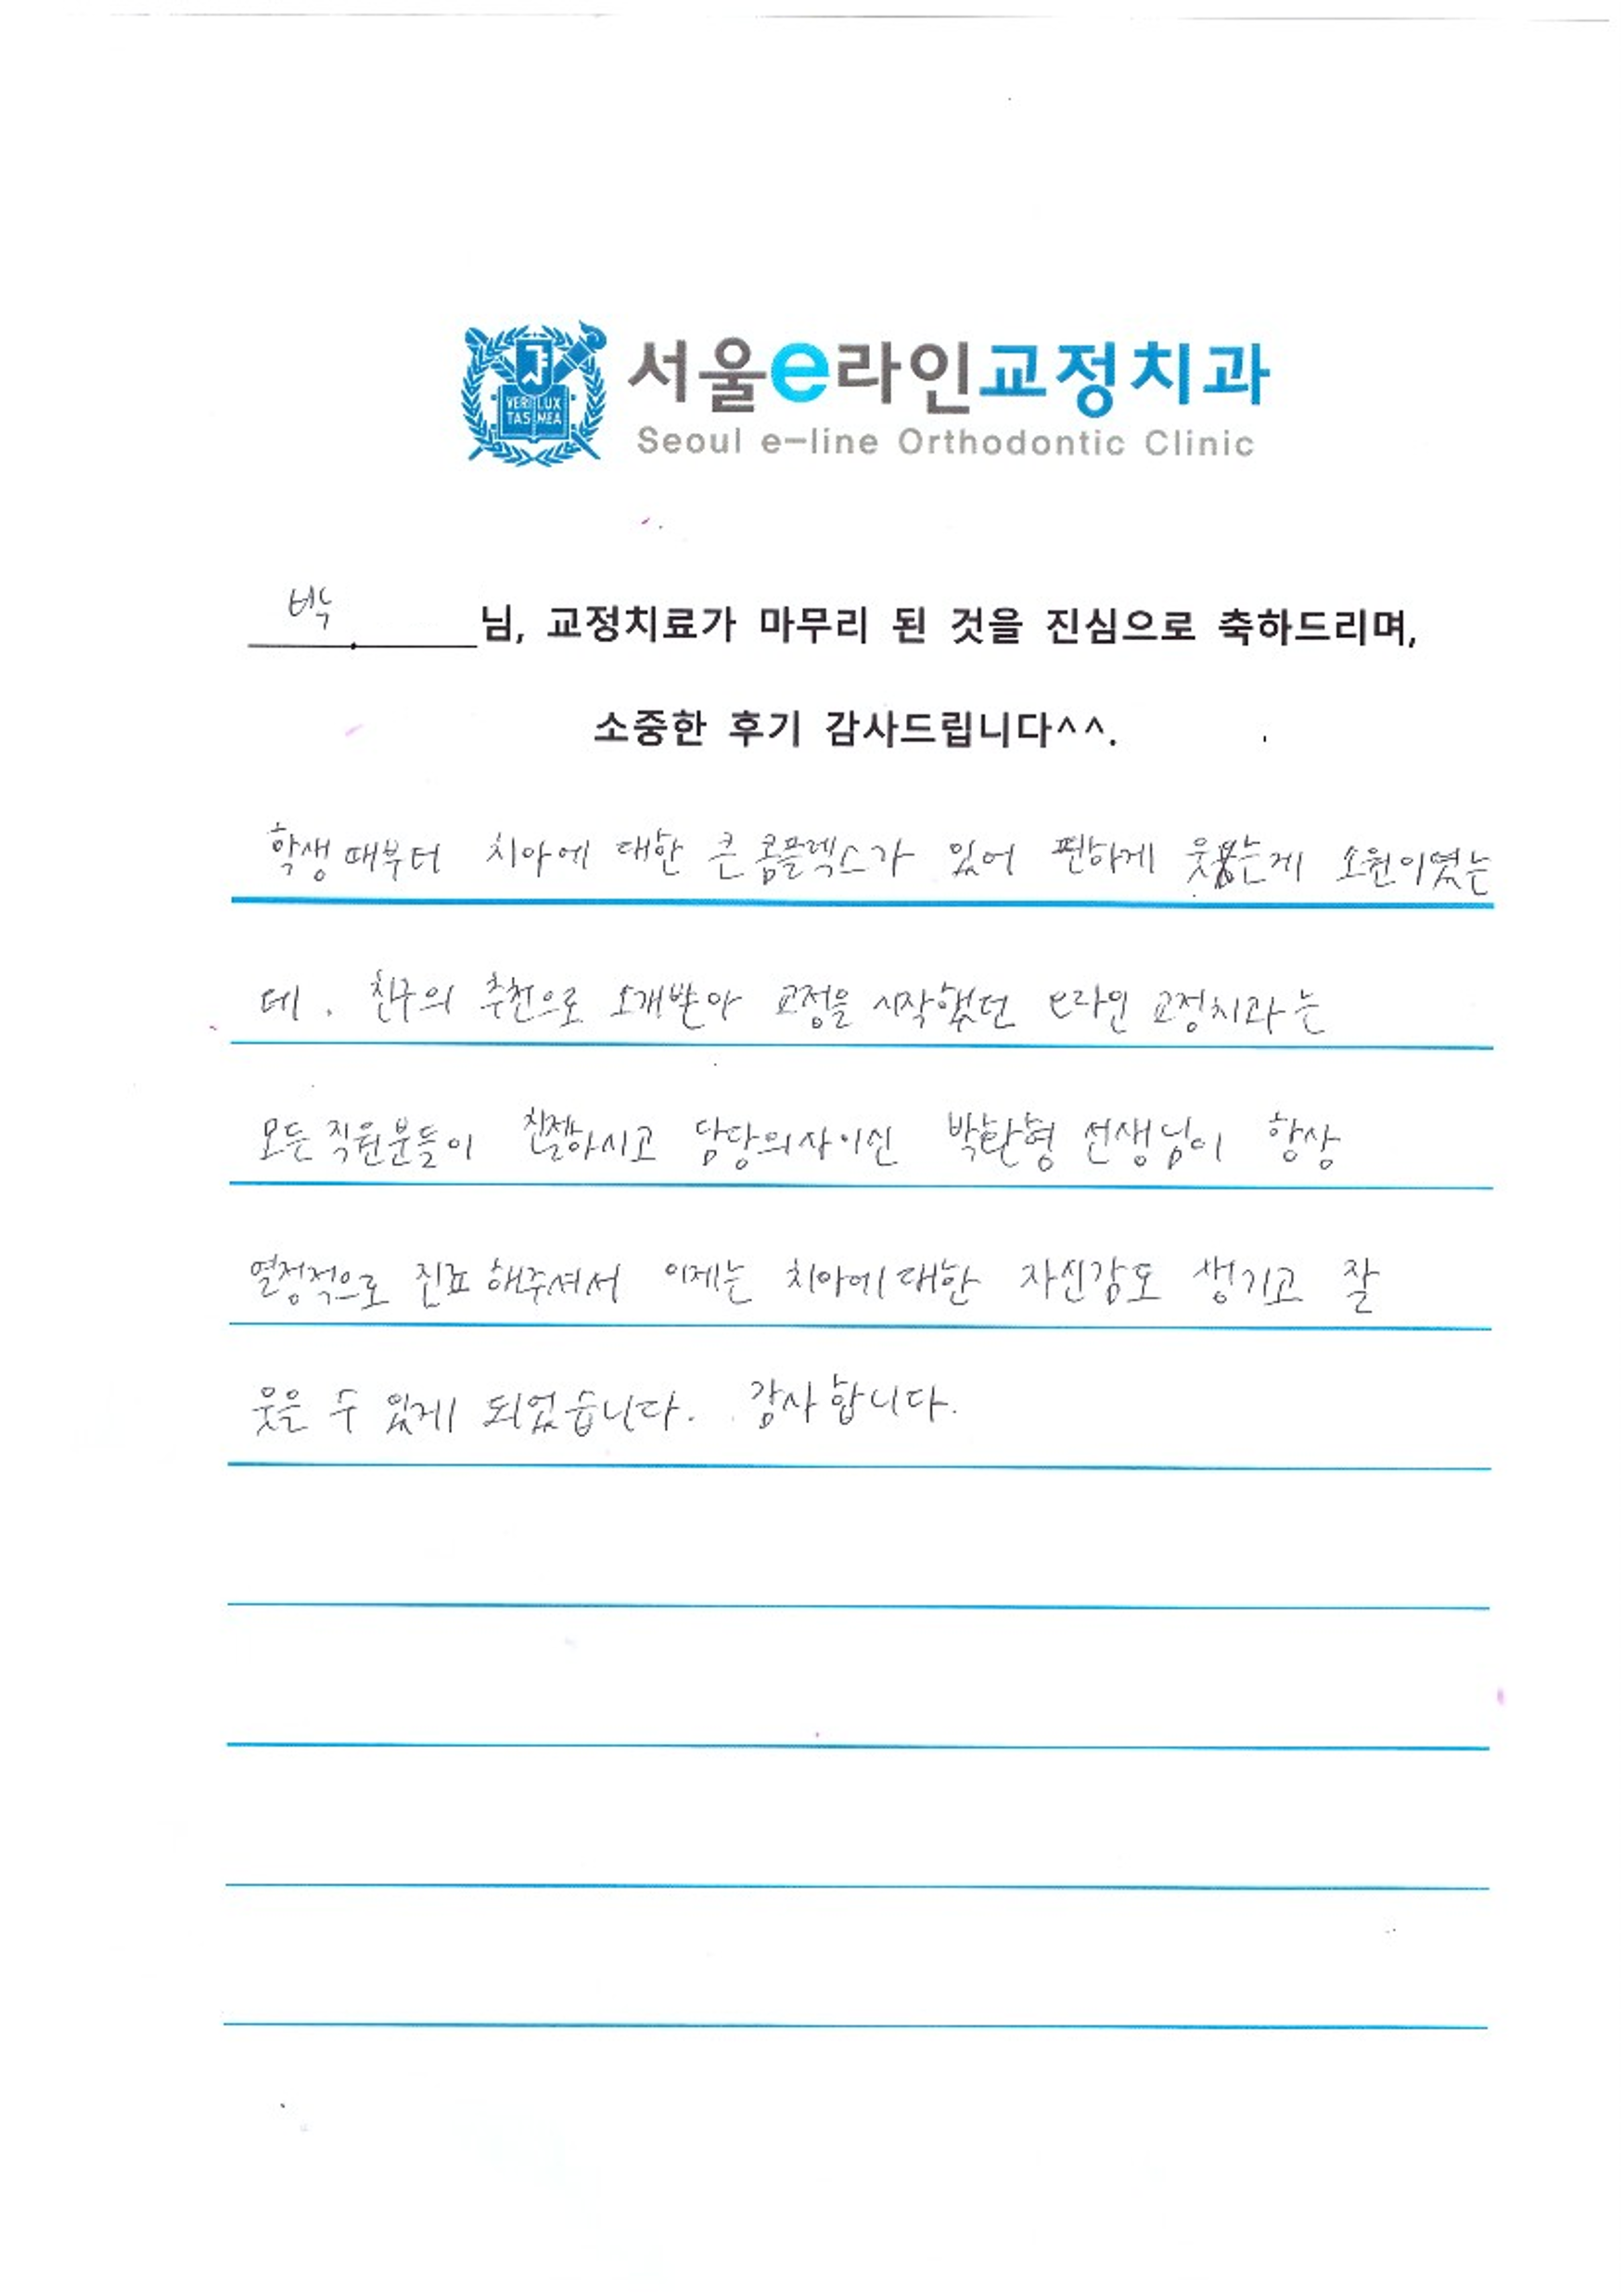 VERI LUX
TAS MEA
서울e라인교정치과
Seoul e-line Orthodontic Clinic
박 님, 교정치료가 마무리 된 것을 진심으로 축하드리며,
소중한 후기 감사드립니다^^.
학생때부터 치아에 대한 큰 콤플렉스가 있어 편하게 웃는게 소원이였는
데. 친구의 추천으로 소개받아 교정을 시작했던 e라인 교정치과는
모든 직원분들이 친절하시고 담당의사이신 선생님이 항상
열정적으로 진료 해주셔서 이제는 치아에 대한 자신감도 생기고 잘
웃을 수 있게 되었습니다. 감사합니다.